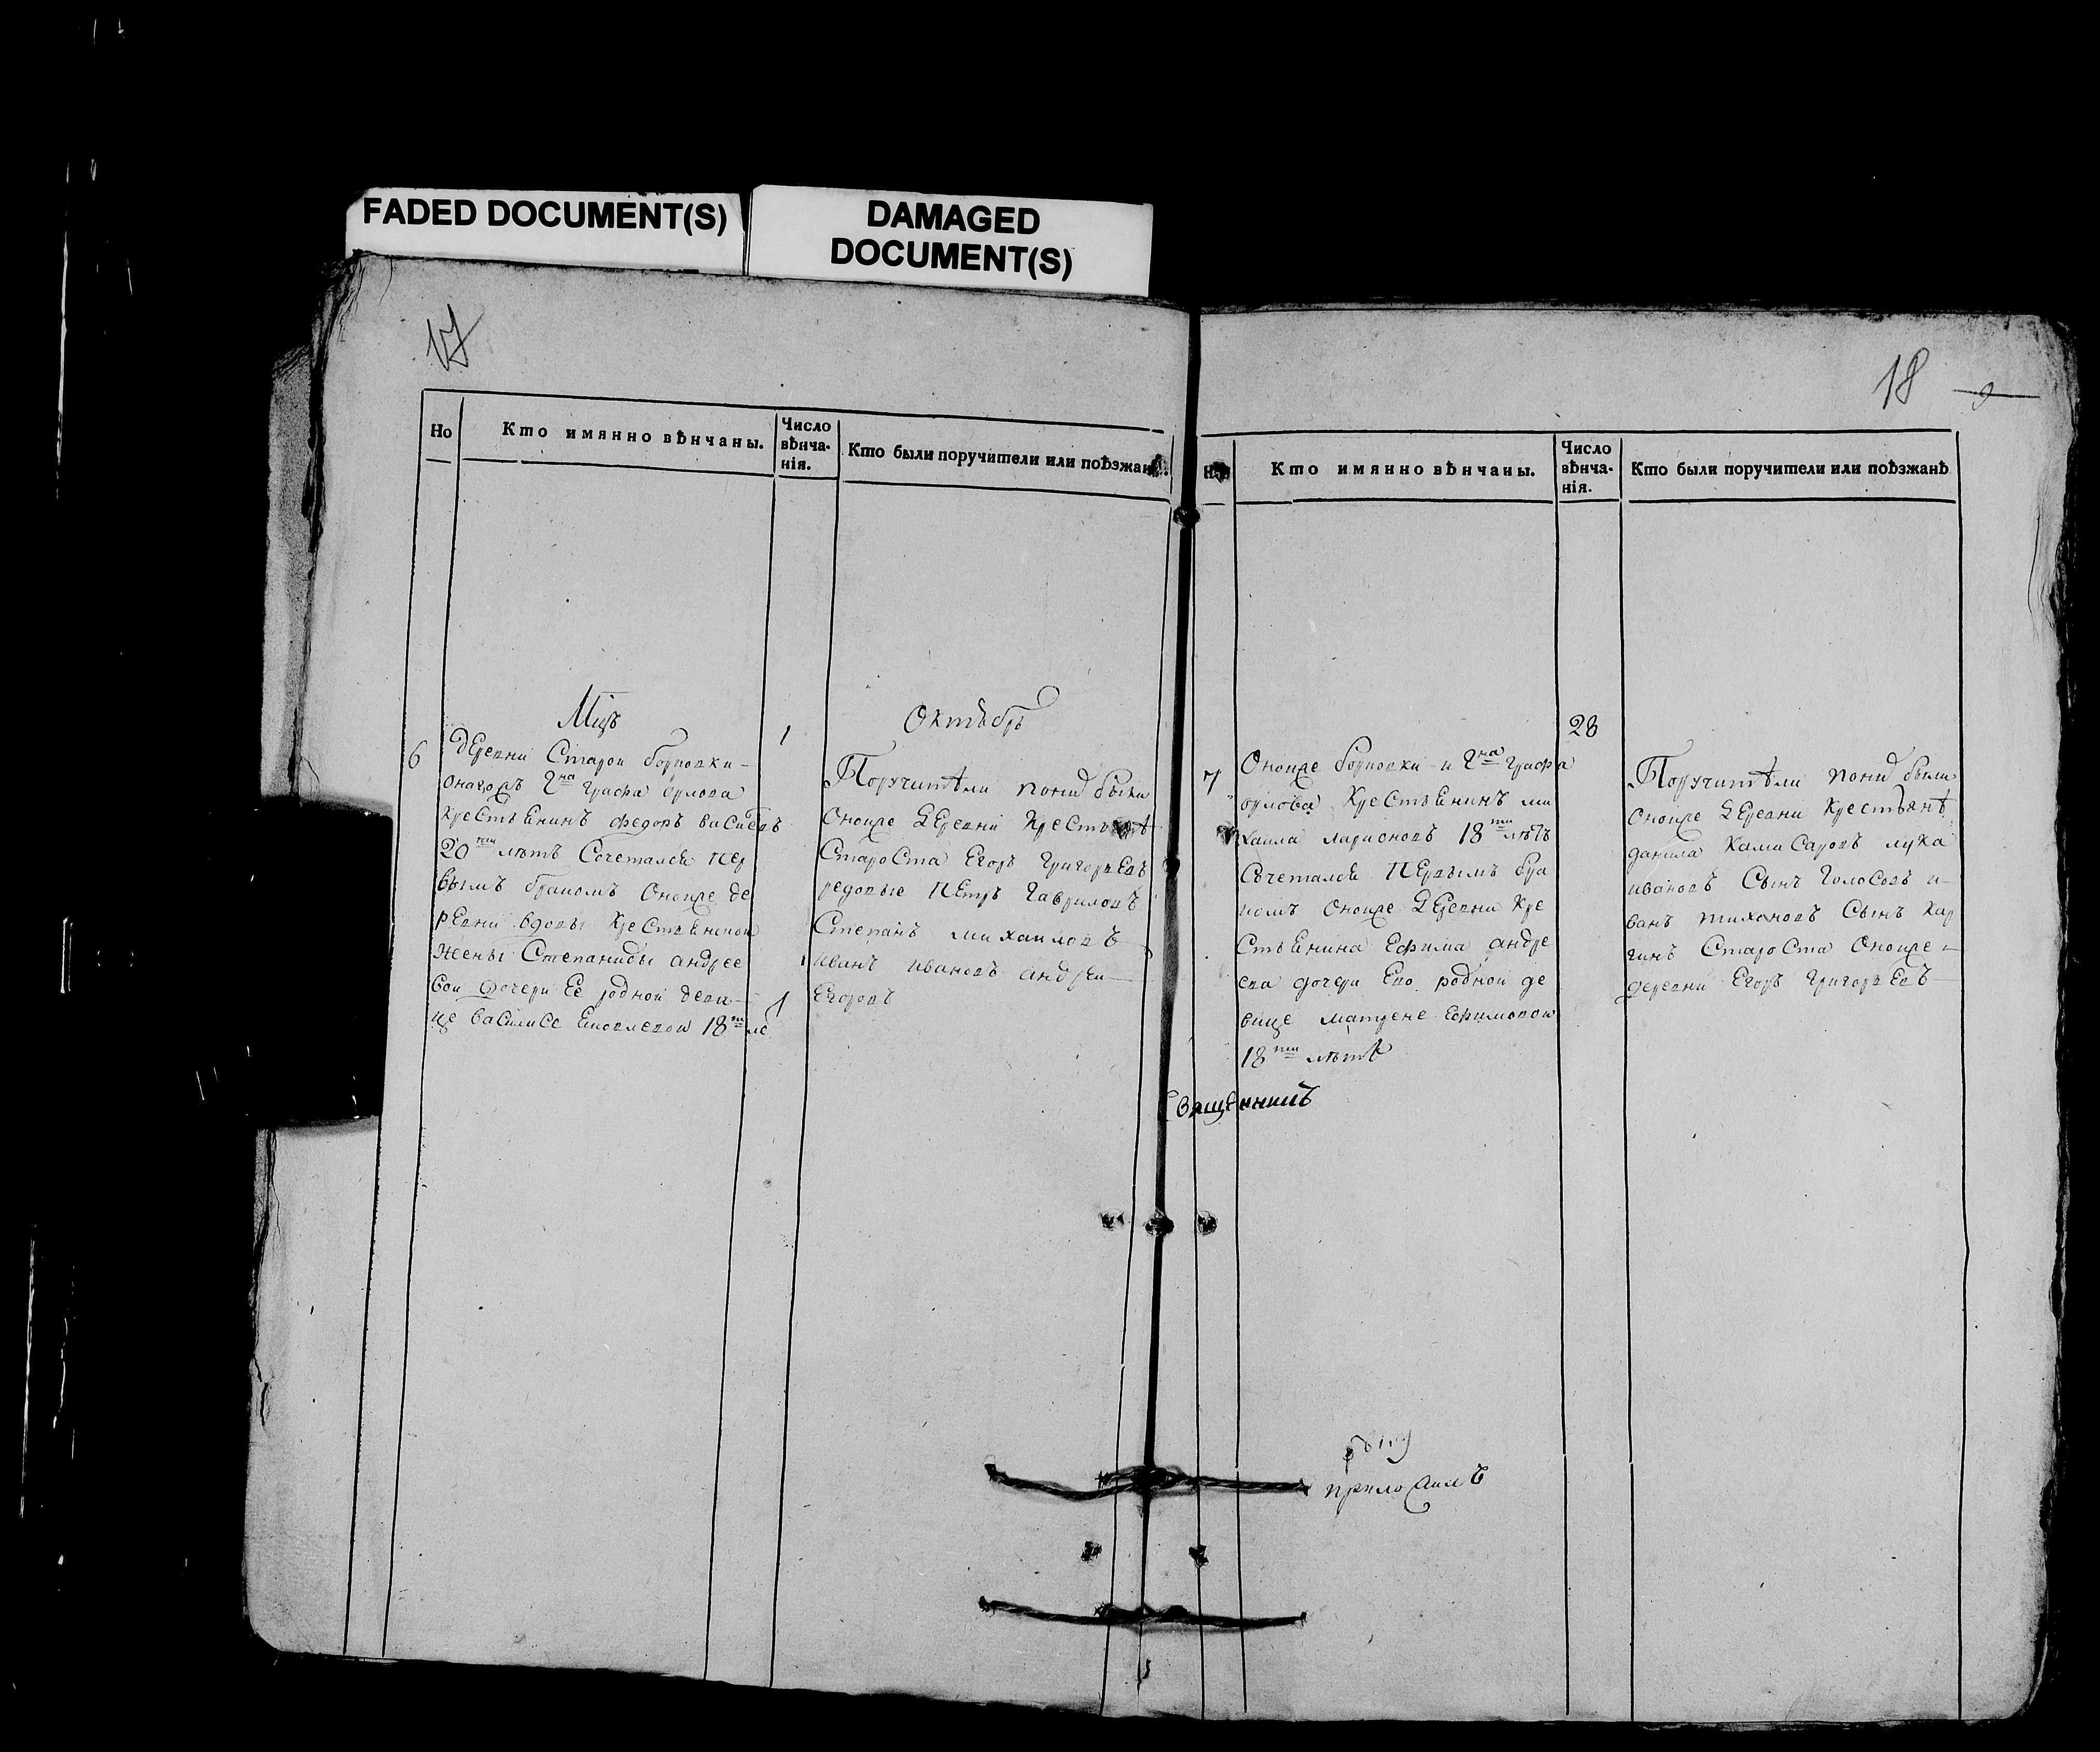 FADED DOCUMENT(S)
DAMAGED
DOCUMENT(S)
17
Но
Кто имянно вѣнчаны.
Число
вѣнча-
нія.
Кто были поручители или поѣзжан
Мцъ
Октябрь
6
1
деревни Старой борковки
онагожъ Гна графа орлова
крестьенинъ федоръ васильевъ
20ти лѣтъ Сочетался пер
вымъ бракомъ Оной же де
ревни вдовы крестьенской
жены Степаниды андрее
вои дочери Ее родной деви
це василисе 18ти ле
Поручители по нид были
Оной же деревни крест
Староста Егоръ Григорьевъ
редовые Петръ Гавриловъ
Степанъ михаиловъ
иванъ ивановъ андреи
Егоровъ
18
Кто имянно вѣнчаны.
Число
вѣнча-
нія.
Кто были поручители или поѣзжанѣ
7
28
Оной же борковки и Гна графа
орлова крестьенинъ ми
хаила ларионовъ 18ти лѣтъ
Сочетался Первымъ бра
комъ Оной же деревни кре
стьенина Ефима андре
ева дочери Ево родной де
вице матрене Ефимовои
18ти лѣтъ
Поручители по нид были
Оной же деревни крестьянѣ
данила Камисаровъ лука
ивановъ Сынъ Голосовъ и
ванъ тихановъ Сынъ кар
гинъ Староста Оной же
деревни Егоръ Григорьевъ
Священникъ
приложилъ